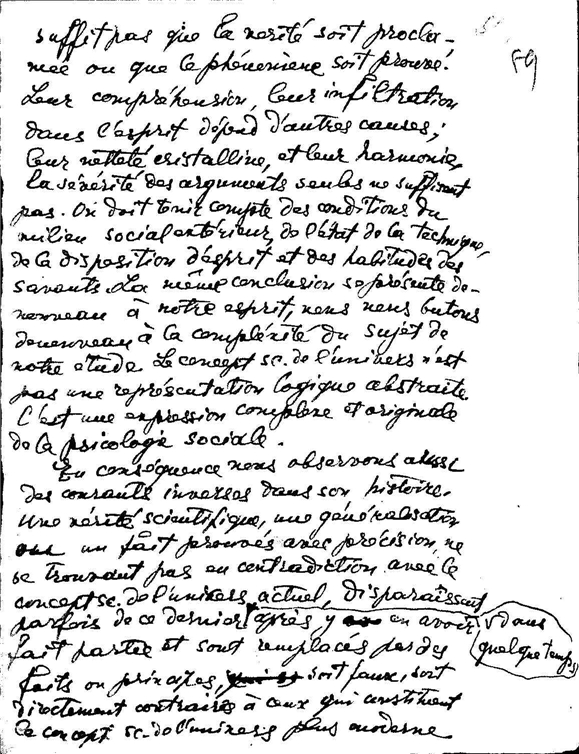 59
suffit pas que la verité soit procla-
mée ou que le phénomène soit prouvé.
Leur compréhension, leur infiltration
dans l'esprit dépend d'autres causes;
leur netteté cristalline, et leur harmonie,
la sévérité des arguments seules ne suffisent
pas. On doit tenir compte des conditions du
milieu social extérieur, de l'état de la technique,
de la disposition d'esprit et des habitudes des
savants. La même conclusion se présente de-
nouveau à notre esprit, nous nous butons
denouveau à la compléxité du sujet de
notre etude. Le concept sc. de l'univers n'est
pas une représentation logique abstraite.
C'est une expression complexe et originale
de la psicologie sociale.
En conséquence nous observons aussi
des courants inverses dans son histoire.
Une vérité scientifique, une généralisation
un fait prouvés avec précision, ne
se trouvant pas en contradiction avec le
concept sc. de l'univers actuel, disparaissent
parfois de ce dernier après y en avoir
dans
quelque temps
fait partie et sont remplacés par des
faits ou principes, soit faux, soit
directement contraires à ceux qui constituent
le concept sc. de l'univers plus moderne